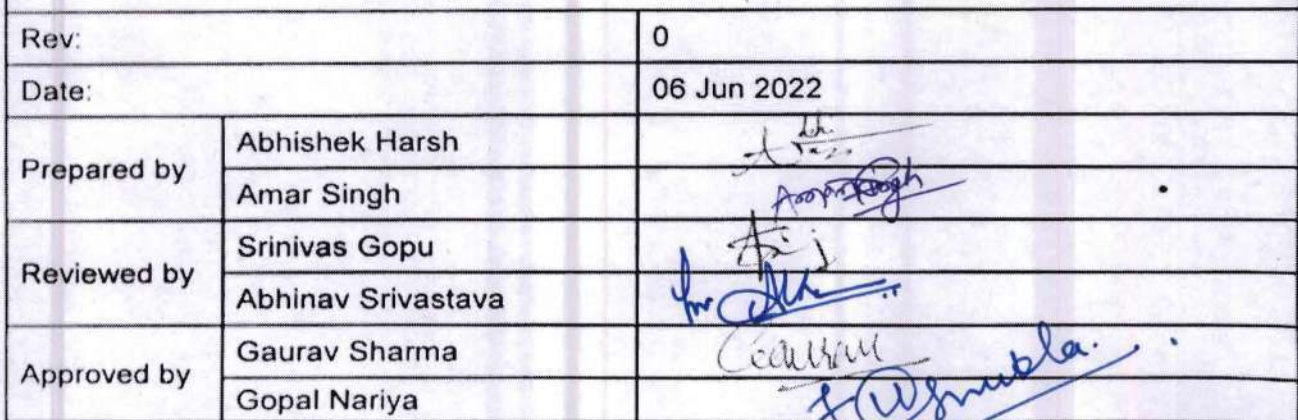 Rev: 0
Date: 06 Jun 2022
Prepared by
Abhishek Harsh
Amar Singh
Reviewed by
Srinivas Gopu
Abhinav Srivastava
for
Approved by
Gaurav Sharma
Gaurav
Gopal Nariya